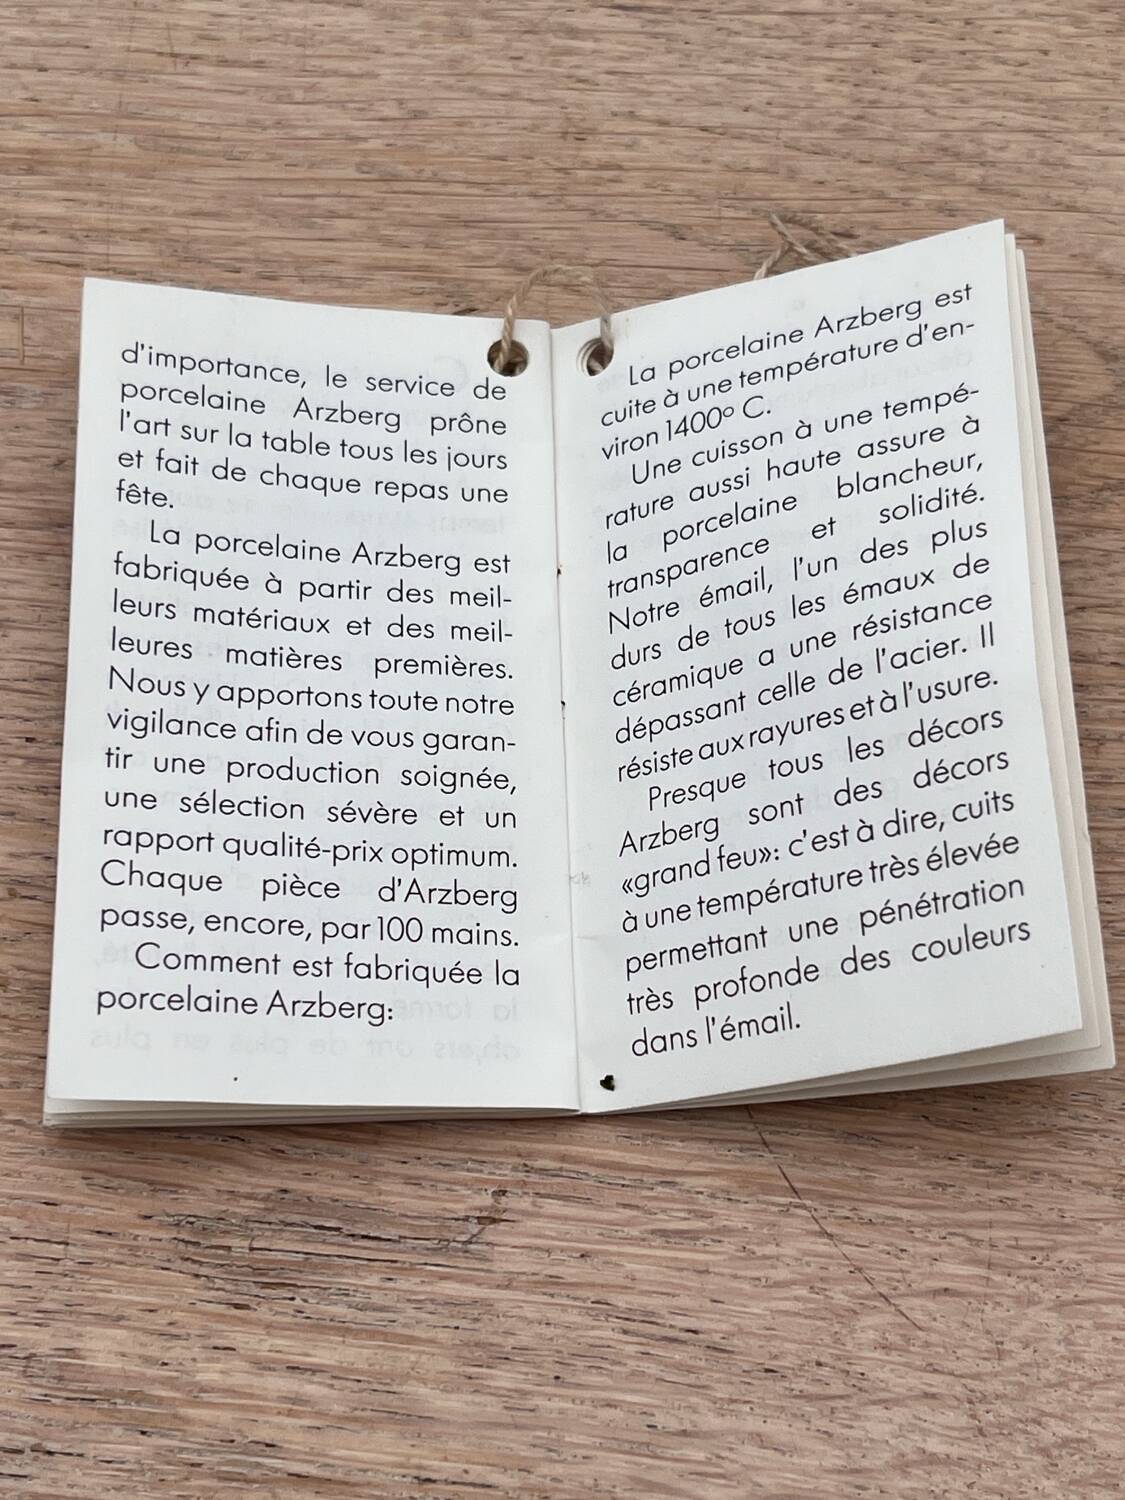 d'importance, le service de
porcelaine Arzberg prône
l'art sur la table tous les jours
et fait de chaque repas une
fête.
La porcelaine Arzberg est
fabriquée à partir des meil-
leurs matériaux et des meil-
leures matières premières.
Nous y apportons toute notre
vigilance afin de vous garan-
tir une production soignée,
une sélection sévère et un
rapport qualité-prix optimum.
Chaque pièce d'Arzberg
passe, encore, par 100 mains.
Comment est fabriquée la
porcelaine Arzberg:
La porcelaine Arzberg est
cuite à une température d'en-
viron 1400º C.
Une cuisson à une tempé-
rature aussi haute assure à
la porcelaine blancheur,
transparence et solidité.
Notre émail, l'un des plus
durs de tous les émaux de
céramique a une résistance
dépassant celle de l'acier. Il
résiste aux rayures et à l'usure.
Presque tous les décors
Arzberg sont des décors
«grand feu»: c'est à dire, cuits
à une température très élevée
permettant une pénétration
très profonde des couleurs
dans l'émail.